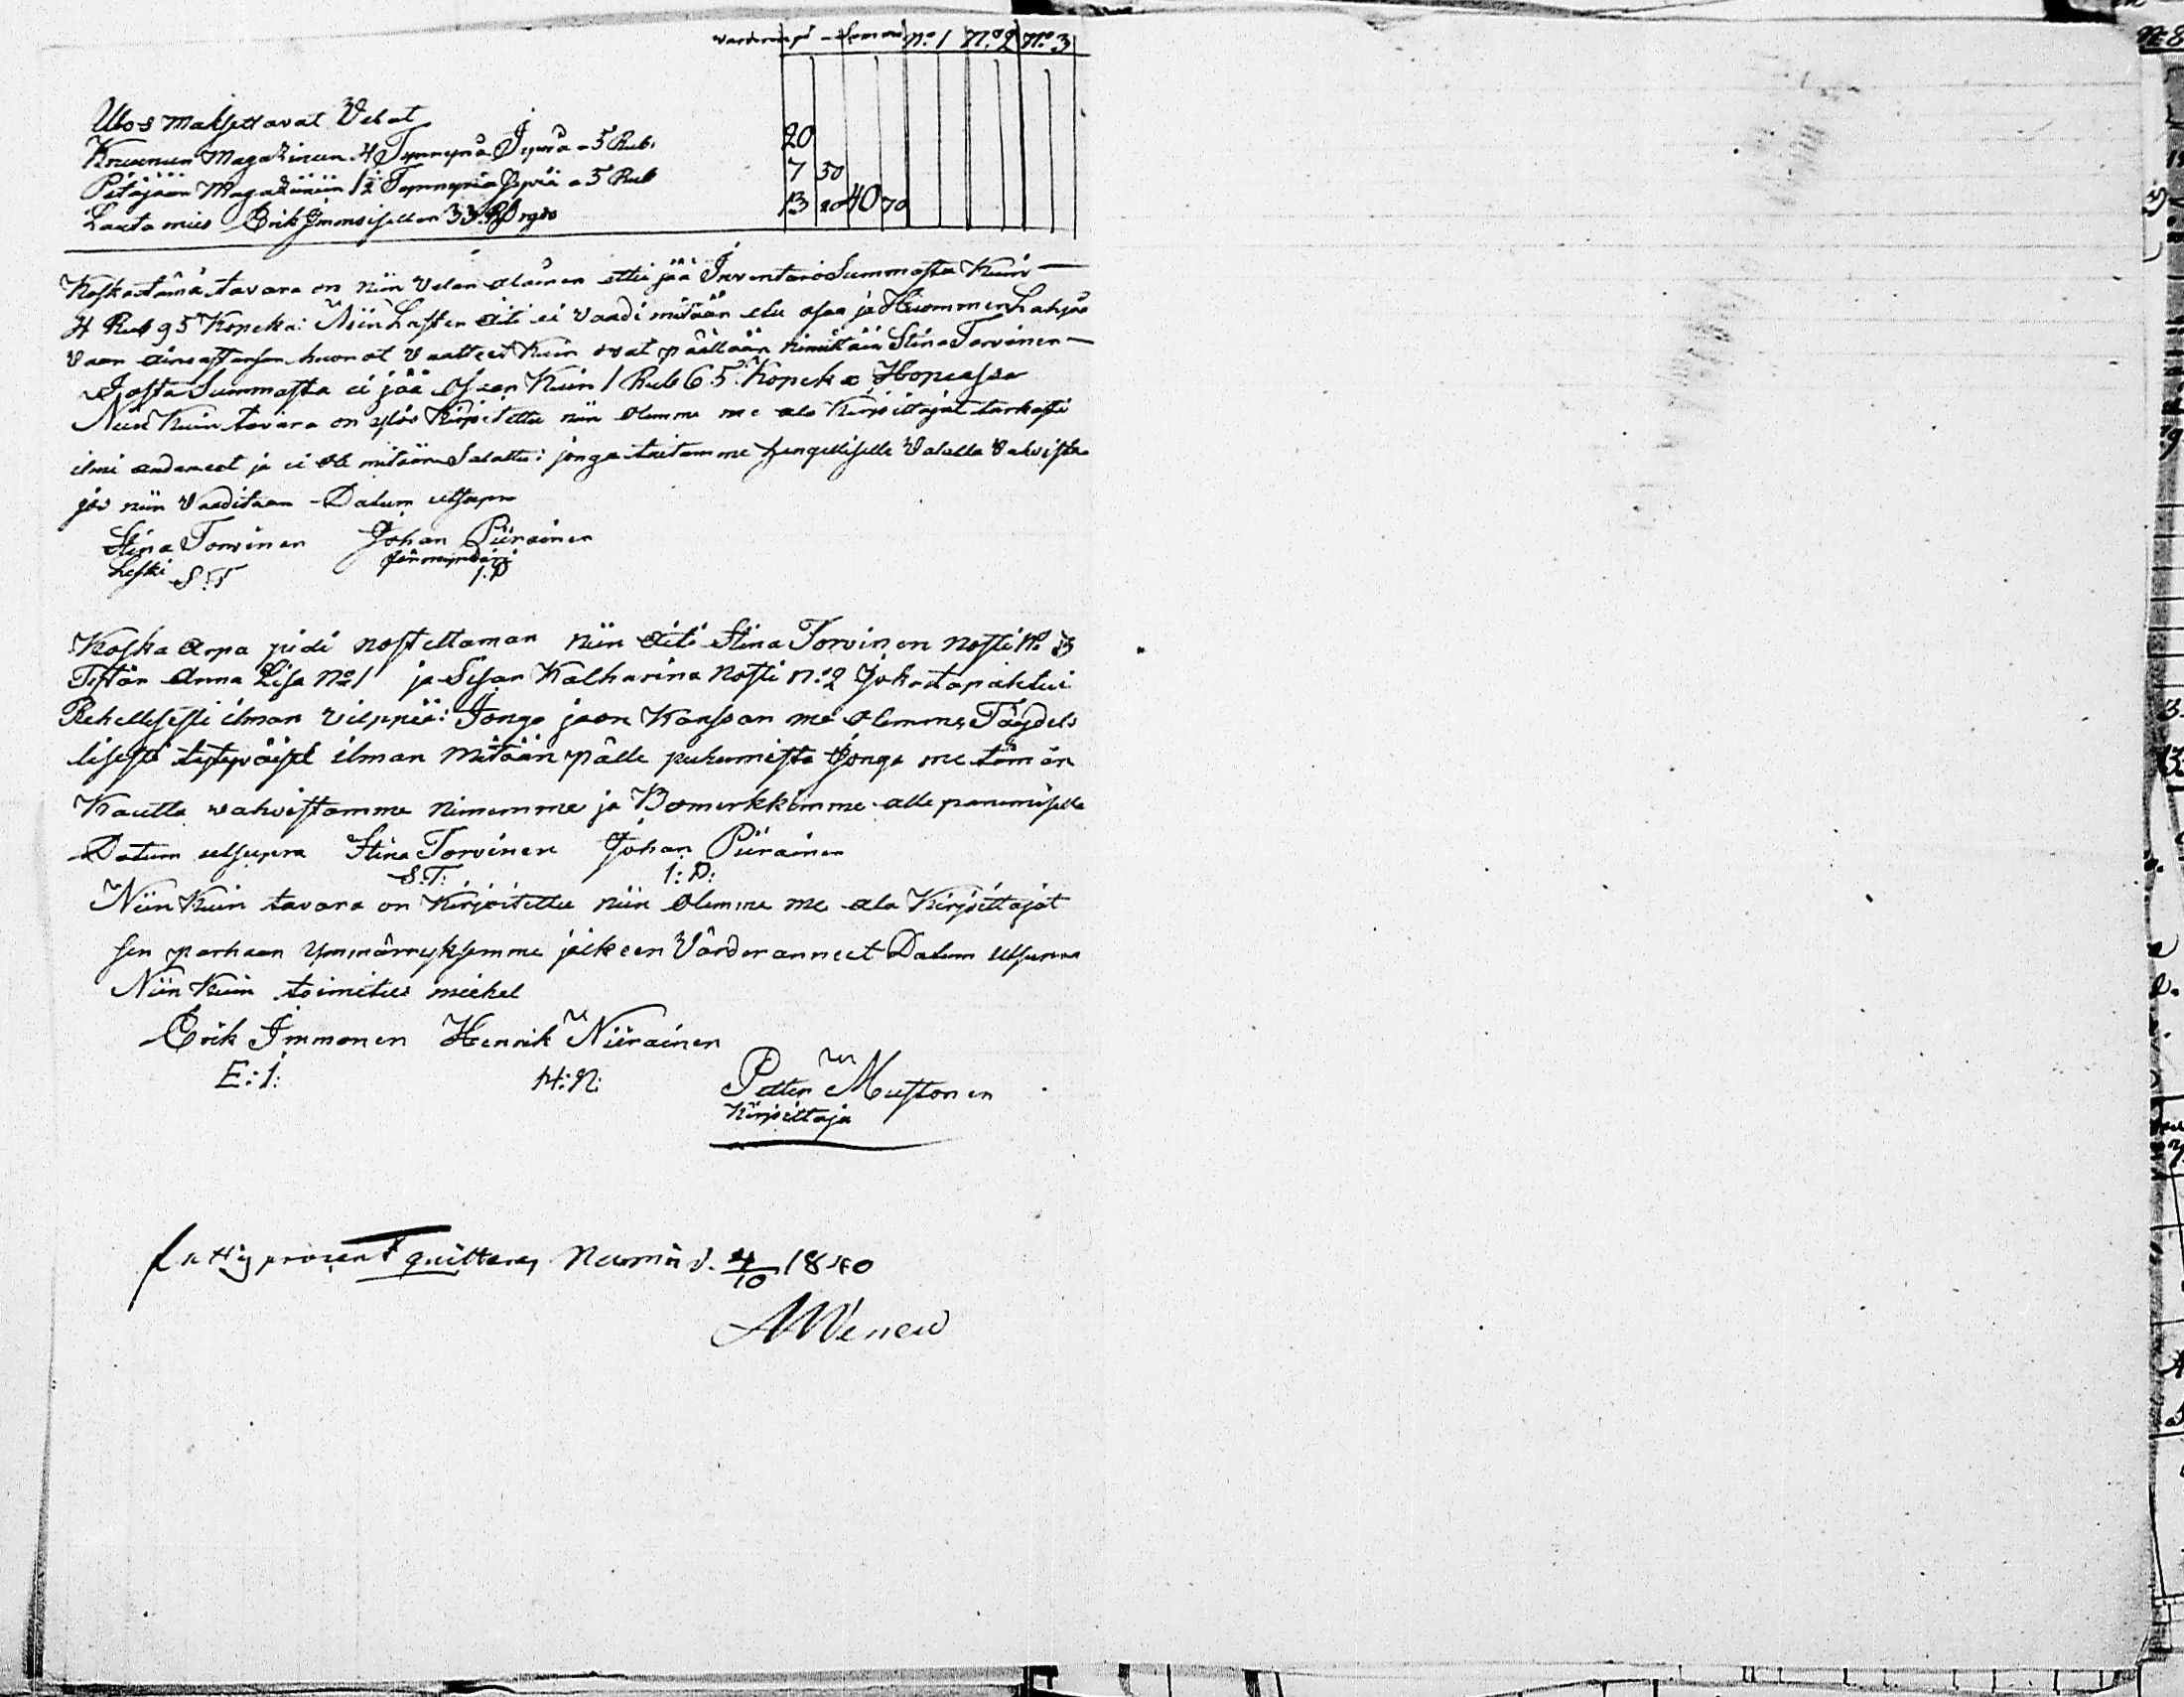 No 1 No 2 No 3
Ulos maksettavat Velat
Kruunun Magazinun 4 Tynnyriä Jyviä a 5 Rub. 20
Pitäjään Magaziiniin 1½ Tynnyriä Jyviä a 5 Rub 7 50
Lautamies Erik Immoisellen 33 13 20 40 70
Koska tämä tavara on niin Velan alainen ettei jää Inventario Summasta Kuin
4 Rub 95 Kopeka: Niin Lasten äiti ei vaadi mitään etu osaa ja Huommen Lahjaa
Vaan ainoastansa huonot Vaatteet Kuin ovat päällään nimittäin Stina Torvinen
Josta Summasta ei jää Osaan Kuin 1 Rub 65 Kopeka Hopeassa
Niin Kuin tavara on ylös Kirjoitettu niin olemme me ala Kirjoittajat tarkasti
ilmi andaneet ja ei ole mitään Salattu: jonga taitamme hengelliselle Valalla Vahvistaa
jos niin Vaaditaan Datum utsupra
Stina Torvinen Johan Piirainen
Leski förmyndäri
S:T I:P
Koska Arpa pidi nostettaman niin äiti Stina Torvinen nosti No 3
Tytär Anna Lisa No 1 ja Sisar Katharina nosti No 2 Joka tapahtui
Rehellisesti ilman vilppiä: Jonga jaon Kanssan me olemme Täydel
lisesti tytyväiset ilman mitään pälle puhumista Jonga me tämän
Kautta vahvistamme nimemme ja Bomerkkimme alle panemisella
Datum utsupra Stina Torvinen Johan Piirainen
S:T: I:P:
Niin Kuin tavara on Kirjoitettu niin olemme me ala Kirjoittajat
sen parhaan ymmärryksemme jälkeen Värderanneet Datum utsupra
Niin Kuin toimitus miehet
Erik Immonen Henrik Niirainen
E:I: H:N: Petter Mustonen
Kirjoittaja
fattigprocent quitteras Nurmis d. 4/10 1840
AWenew